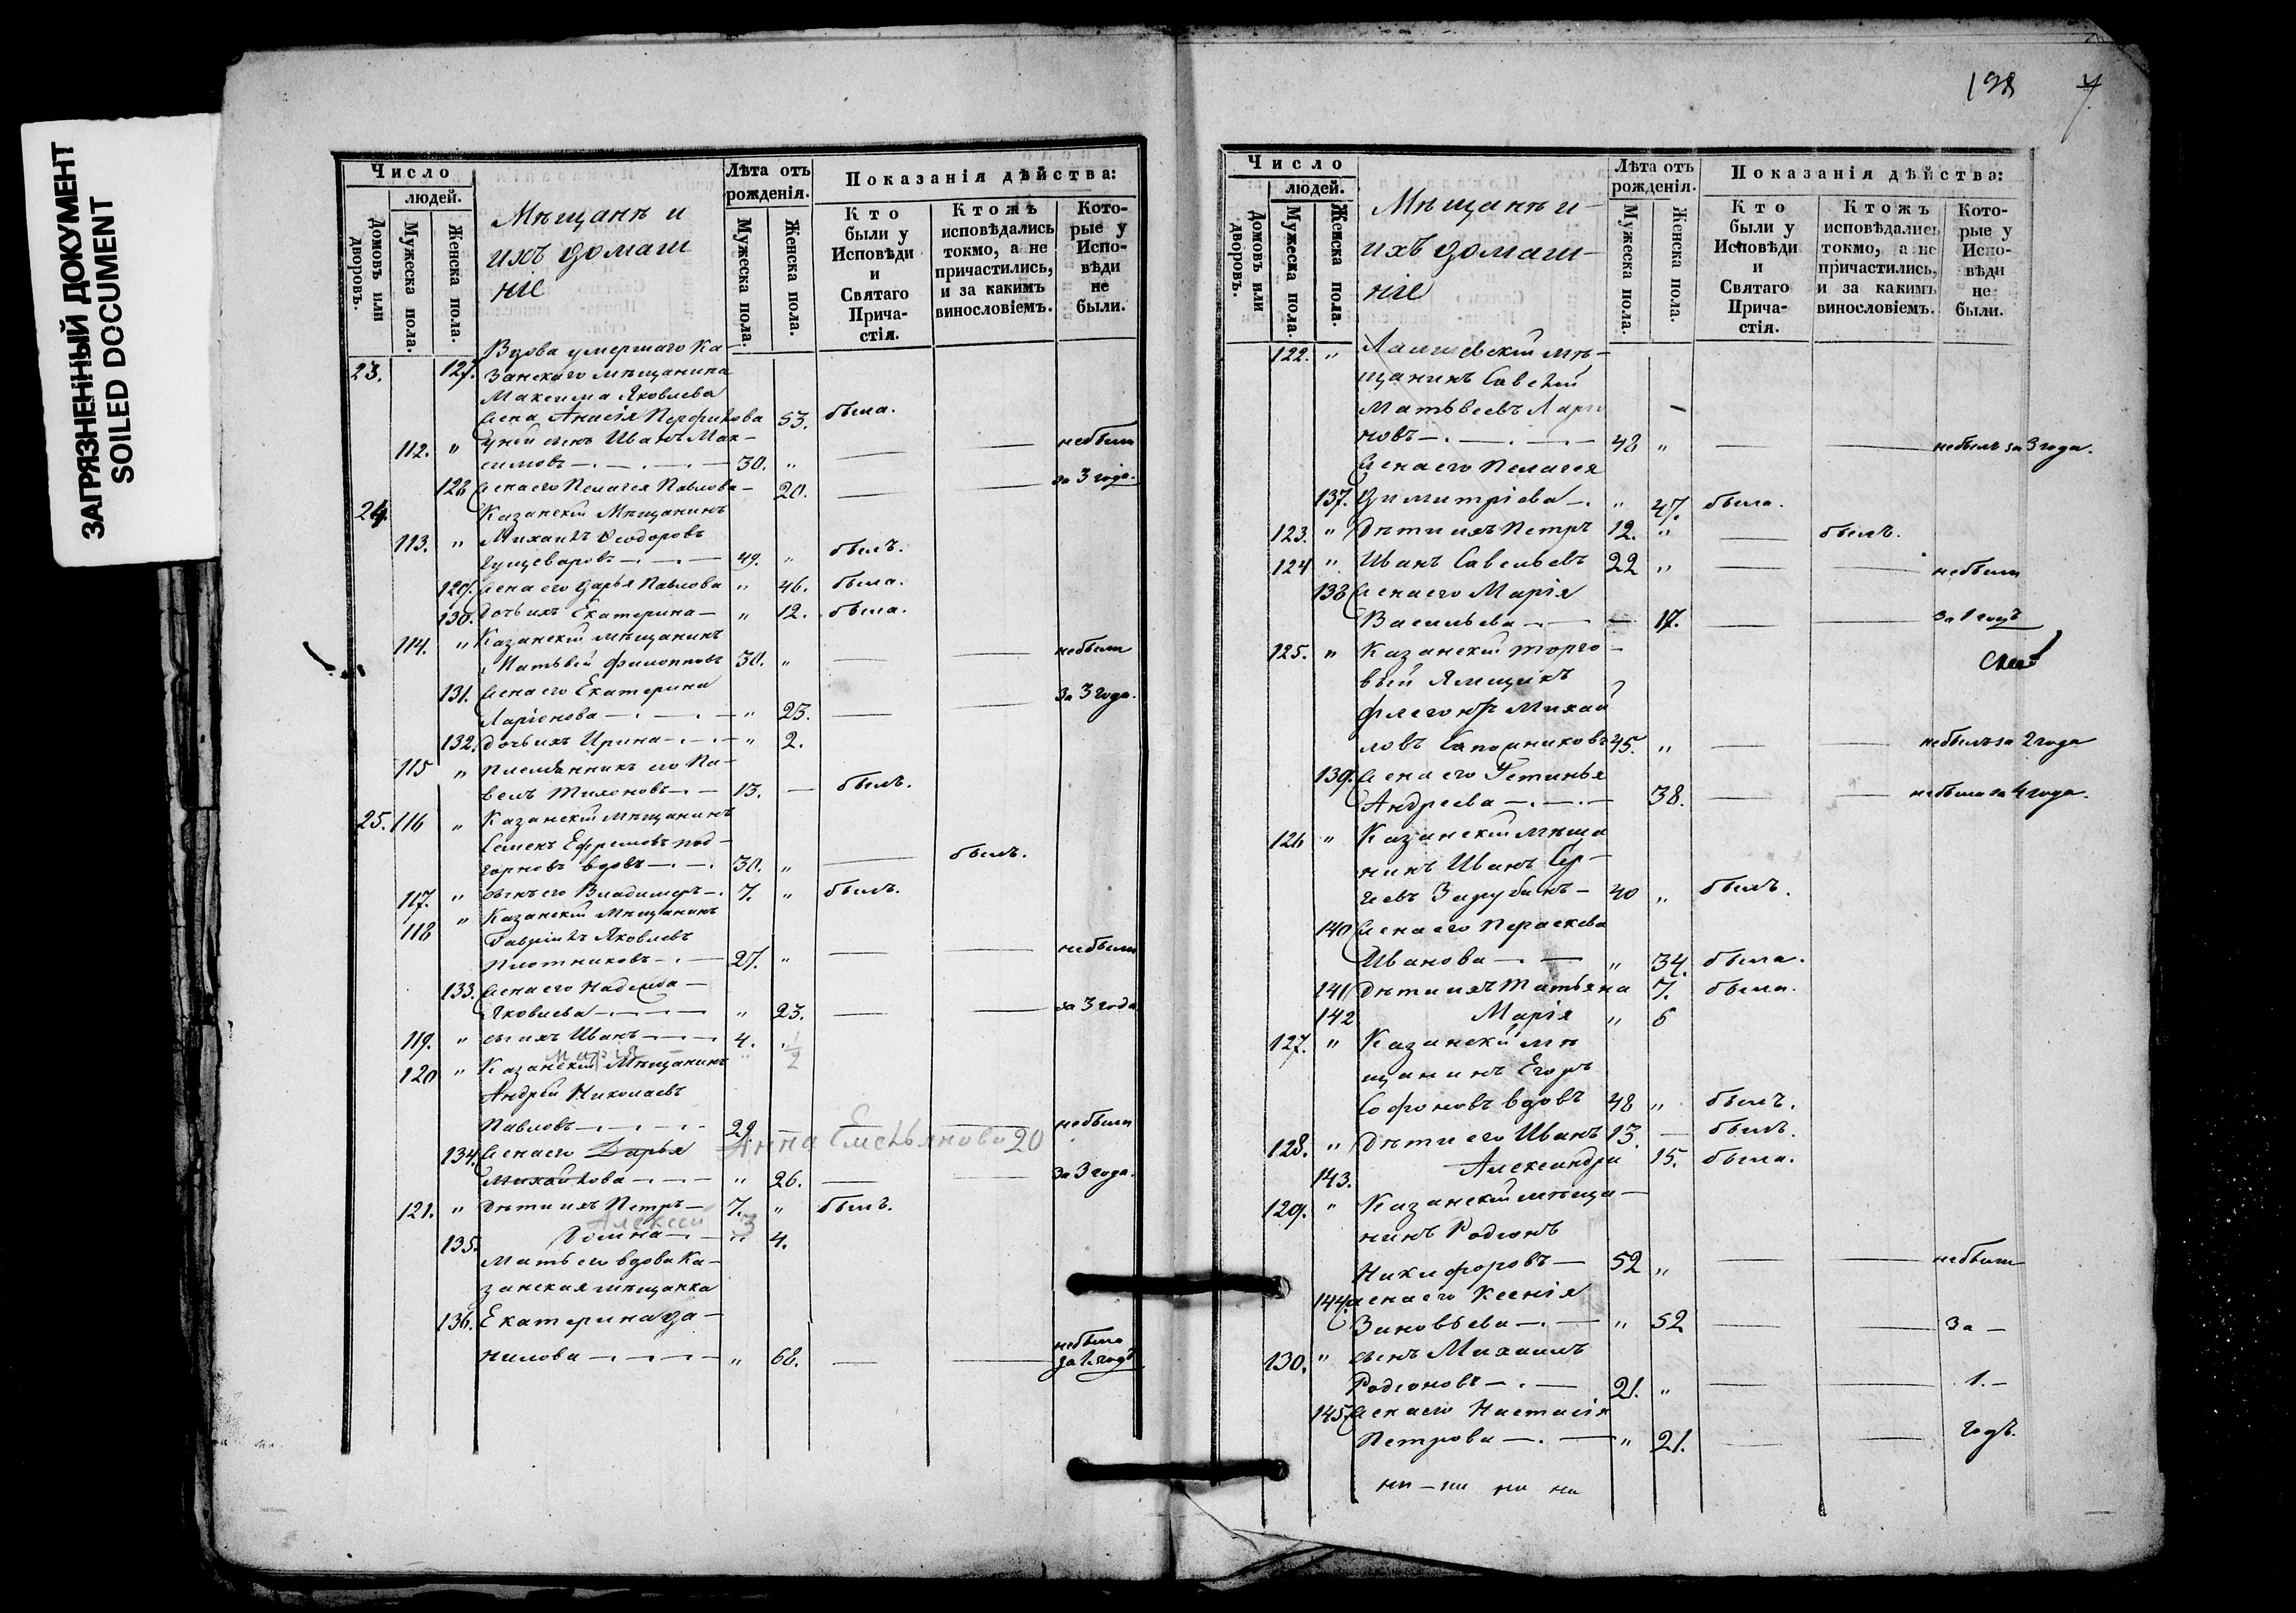 ЗАГРЯЗНЕННЫЙ ДОКУМЕНТ
SOILED DOCUMENT
Число
людей.
Домовъ или дворовъ.
Мужеска пола.
Женска пола.
Мѣщанѣ и
ихъ домаш
ніе
Лѣта отъ рожденія.
Мужеска пола.
Женска пола.
Показанія дѣйства:
Кто были у Исповѣди и Святаго Прича-стія.
Ктожъ исповѣдались токмо, а не причастились, и за какимъ винословіемъ.
Кото-рые у Испо-вѣди не были.
Вдова умершаго Ка-
23. 127. занскаго мѣщанина
Максима Яковлева
жена Анисія Перфилова 53. была.
112. " у ней сынъ Иванъ Мак- небыли
симовъ 30. "
128 жена его Пелагея Павлова 20. за 3 года.
24. Казанскій Мѣщанинъ
113. " Михаилъ Ѳеодоровъ
49. " былъ.
129. жена его Дарья Павлова " 46. была.
130. дочь ихъ Екатерина " 12. была.
114. " Казанскій мѣщанинъ
Матвѣй Филипповъ 30. " небыли
131. жена его Екатерина за 3 года.
Ларіонова " 23.
132. дочь ихъ Ирина " 2.
115 " племянникъ его Па-
велъ Тихоновъ 13. былъ.
25. 116 " Казанскій мѣщанинъ
Семенъ Ефремовъ под-
горновъ вдовъ 30. " былъ.
117. " сынъ его Владимеръ 7. " былъ.
118 " Казанскій Мѣщанинъ
Гавріилъ Яковлевъ
Плотниковъ 27. " небыли
133. жена его Надежда
Яковлева " 23. за 3 года
119. " сынъ ихъ Иванъ 4. "
Марія 1/2
120 " Казанскій Мѣщанинъ
Андрей Николаевъ
Павловъ 29 небыли
134. жена его Дарья Анна Емельянова 20
Михайлова " 26. за 3 года.
121. " Дѣти ихъ Петръ 7. " былъ.
Алексей 3
135. " 4.
Мать его вдова Ка-
занская мѣщанка
136. Екатерина Да-
нилова " 68. небыла за 1 годъ
198
Число
людей.
Домовъ или дворовъ.
Мужеска пола.
Женска пола.
Мѣщанѣ и
ихъ домаш-
ніе
Лѣта отъ рожденія.
Мужеска пола.
Женска пола.
Показанія дѣйства:
Кто были у Исповѣди и Святаго Прича-стія.
Ктожъ исповѣдались токмо, а не причастились, и за какимъ винословіемъ.
Кото-рые у Испо-вѣди не были.
122. " Лаишевскій мѣ-
щанинъ Савелій
Матвеевъ Лари
новъ 48 " небылъ за 3 года.
жена его Пелагея
137. Димитріева " 47. была.
123. " Дѣти ихъ Петръ 12. " былъ.
124 " Иванъ Савельевъ 22 " небыли
138 жена его Марія
Васильева 17. за 1 годъ
125. " Казанскій торго-
вый Ямщикъ
Михаи
ловъ Сапожниковъ 45. " небылъ за 2 года
139. жена его Устинья
Андреева 38. небыла за 4 года.
126 " Казанскій мѣща
нинъ Иванъ Сер-
геевъ Зарубинъ 40 " былъ.
140 жена его Параскева
Иванова " 34. была.
141 Дѣти ихъ Татьяна 7. была.
142 Марія " 6
127. " Казанскій мѣ
щанинъ Егоръ
Софоновъ вдовъ 48 " былъ.
128. " Дѣти его Иванъ 13. былъ.
143. Александра 15. была.
129. " Казанскій мѣща-
нинъ Родіонъ
Никифоровъ 52 " небыли
144. жена его Ксенія
Зиновьева " 52 за
130. " сынъ Михаилъ
Родіоновъ 21. " 1.
145. жена его Настасія
Петрова " 21. годъ.